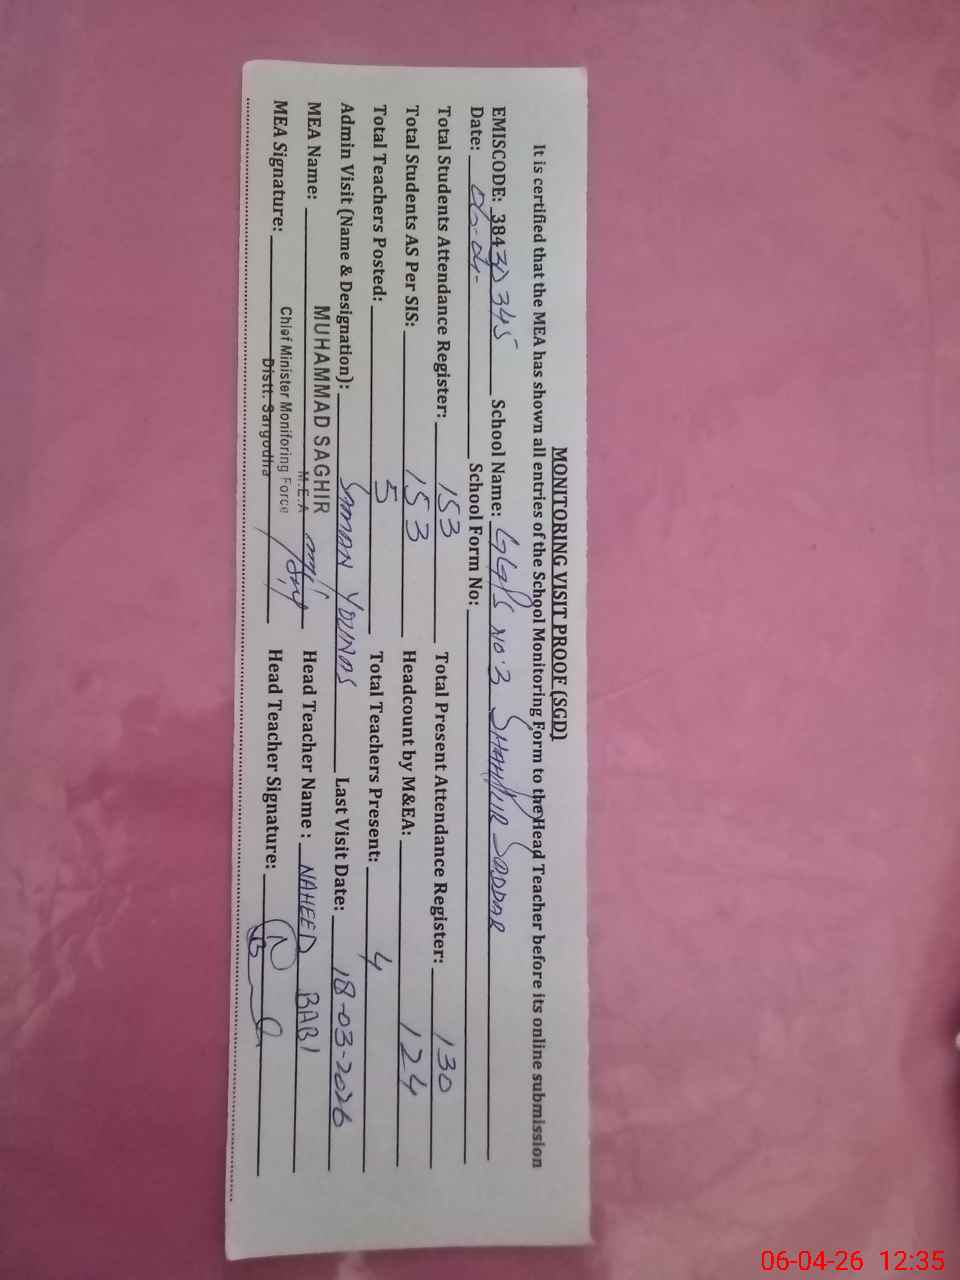 MONITORING VISIT PROOF (SGD)
It is certified that the MEA has shown all entries of the School Monitoring Form to the Head Teacher before its online submission
EMISCODE: 384 345 School Name: GGPS NO 3 SHAHPUR SADDAR
Date: 06-04- School Form No:
Total Students Attendance Register: 153 Total Present Attendance Register: 130
Total Students AS Per SIS: 153 Headcount by M&EA: 124
Total Teachers Posted: 5 Total Teachers Present: 4
Admin Visit (Name & Designation): SAMAN YOUNAS Last Visit Date: 18-03-2026
MEA Name: MUHAMMAD SAGHIR Head Teacher Name : NAHEED BABI
M.E.A
MEA Signature: Chief Minister Monitoring Force Head Teacher Signature:
Distt. Sargodha
06-04-26 12:35